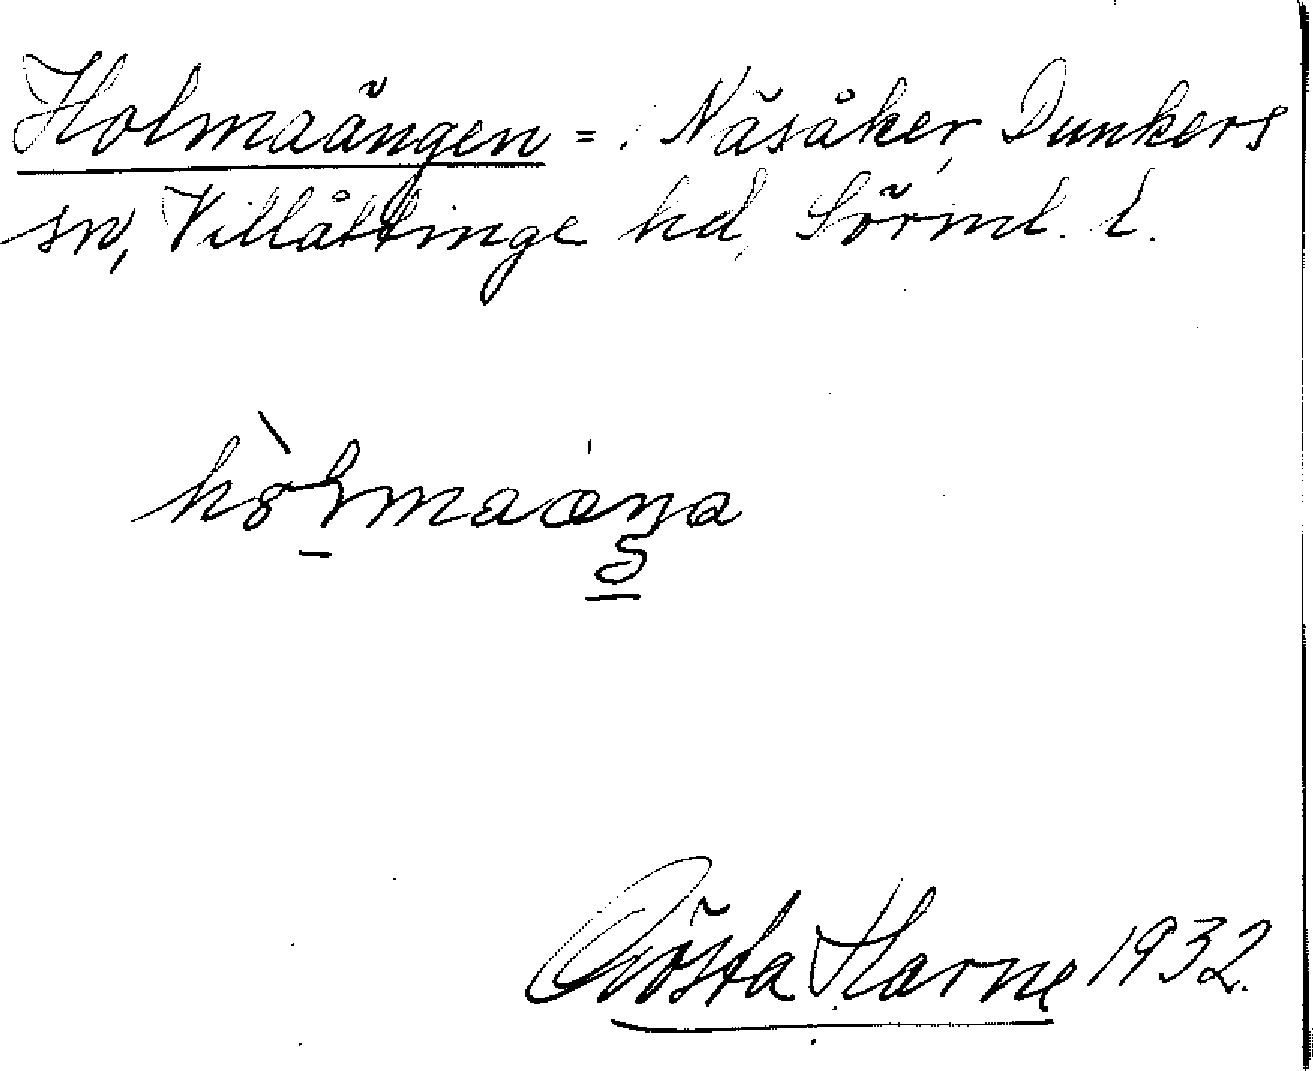 Holmaängen = Näsåker, Dunkers
sn, Villåttinge hd, Sörml. l.
Gösta Harne 1932.